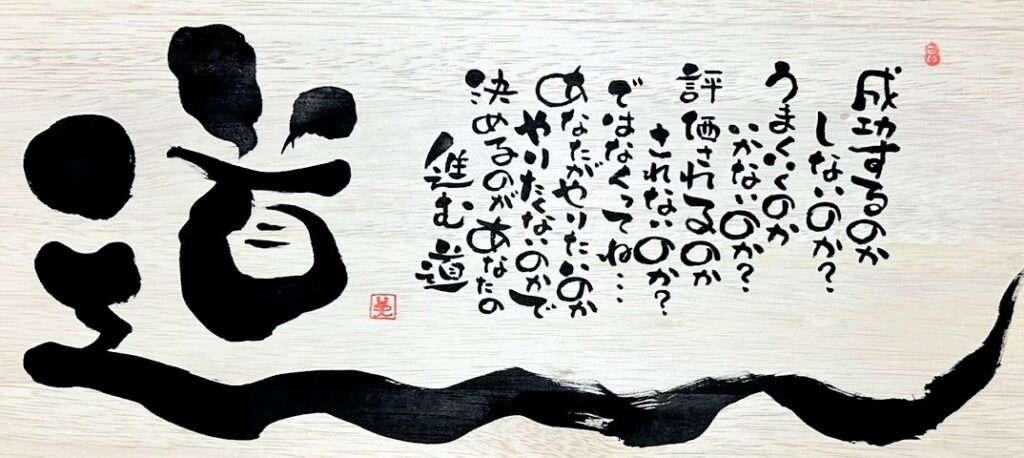 成功するのか
しないのか？
うまくいくのか
いかないのか？
評価されるのか
されないのか？
ではなくってね…
あなたがやりたいのか
やりたくないのかで
決めるのがあなたの
進む道
道